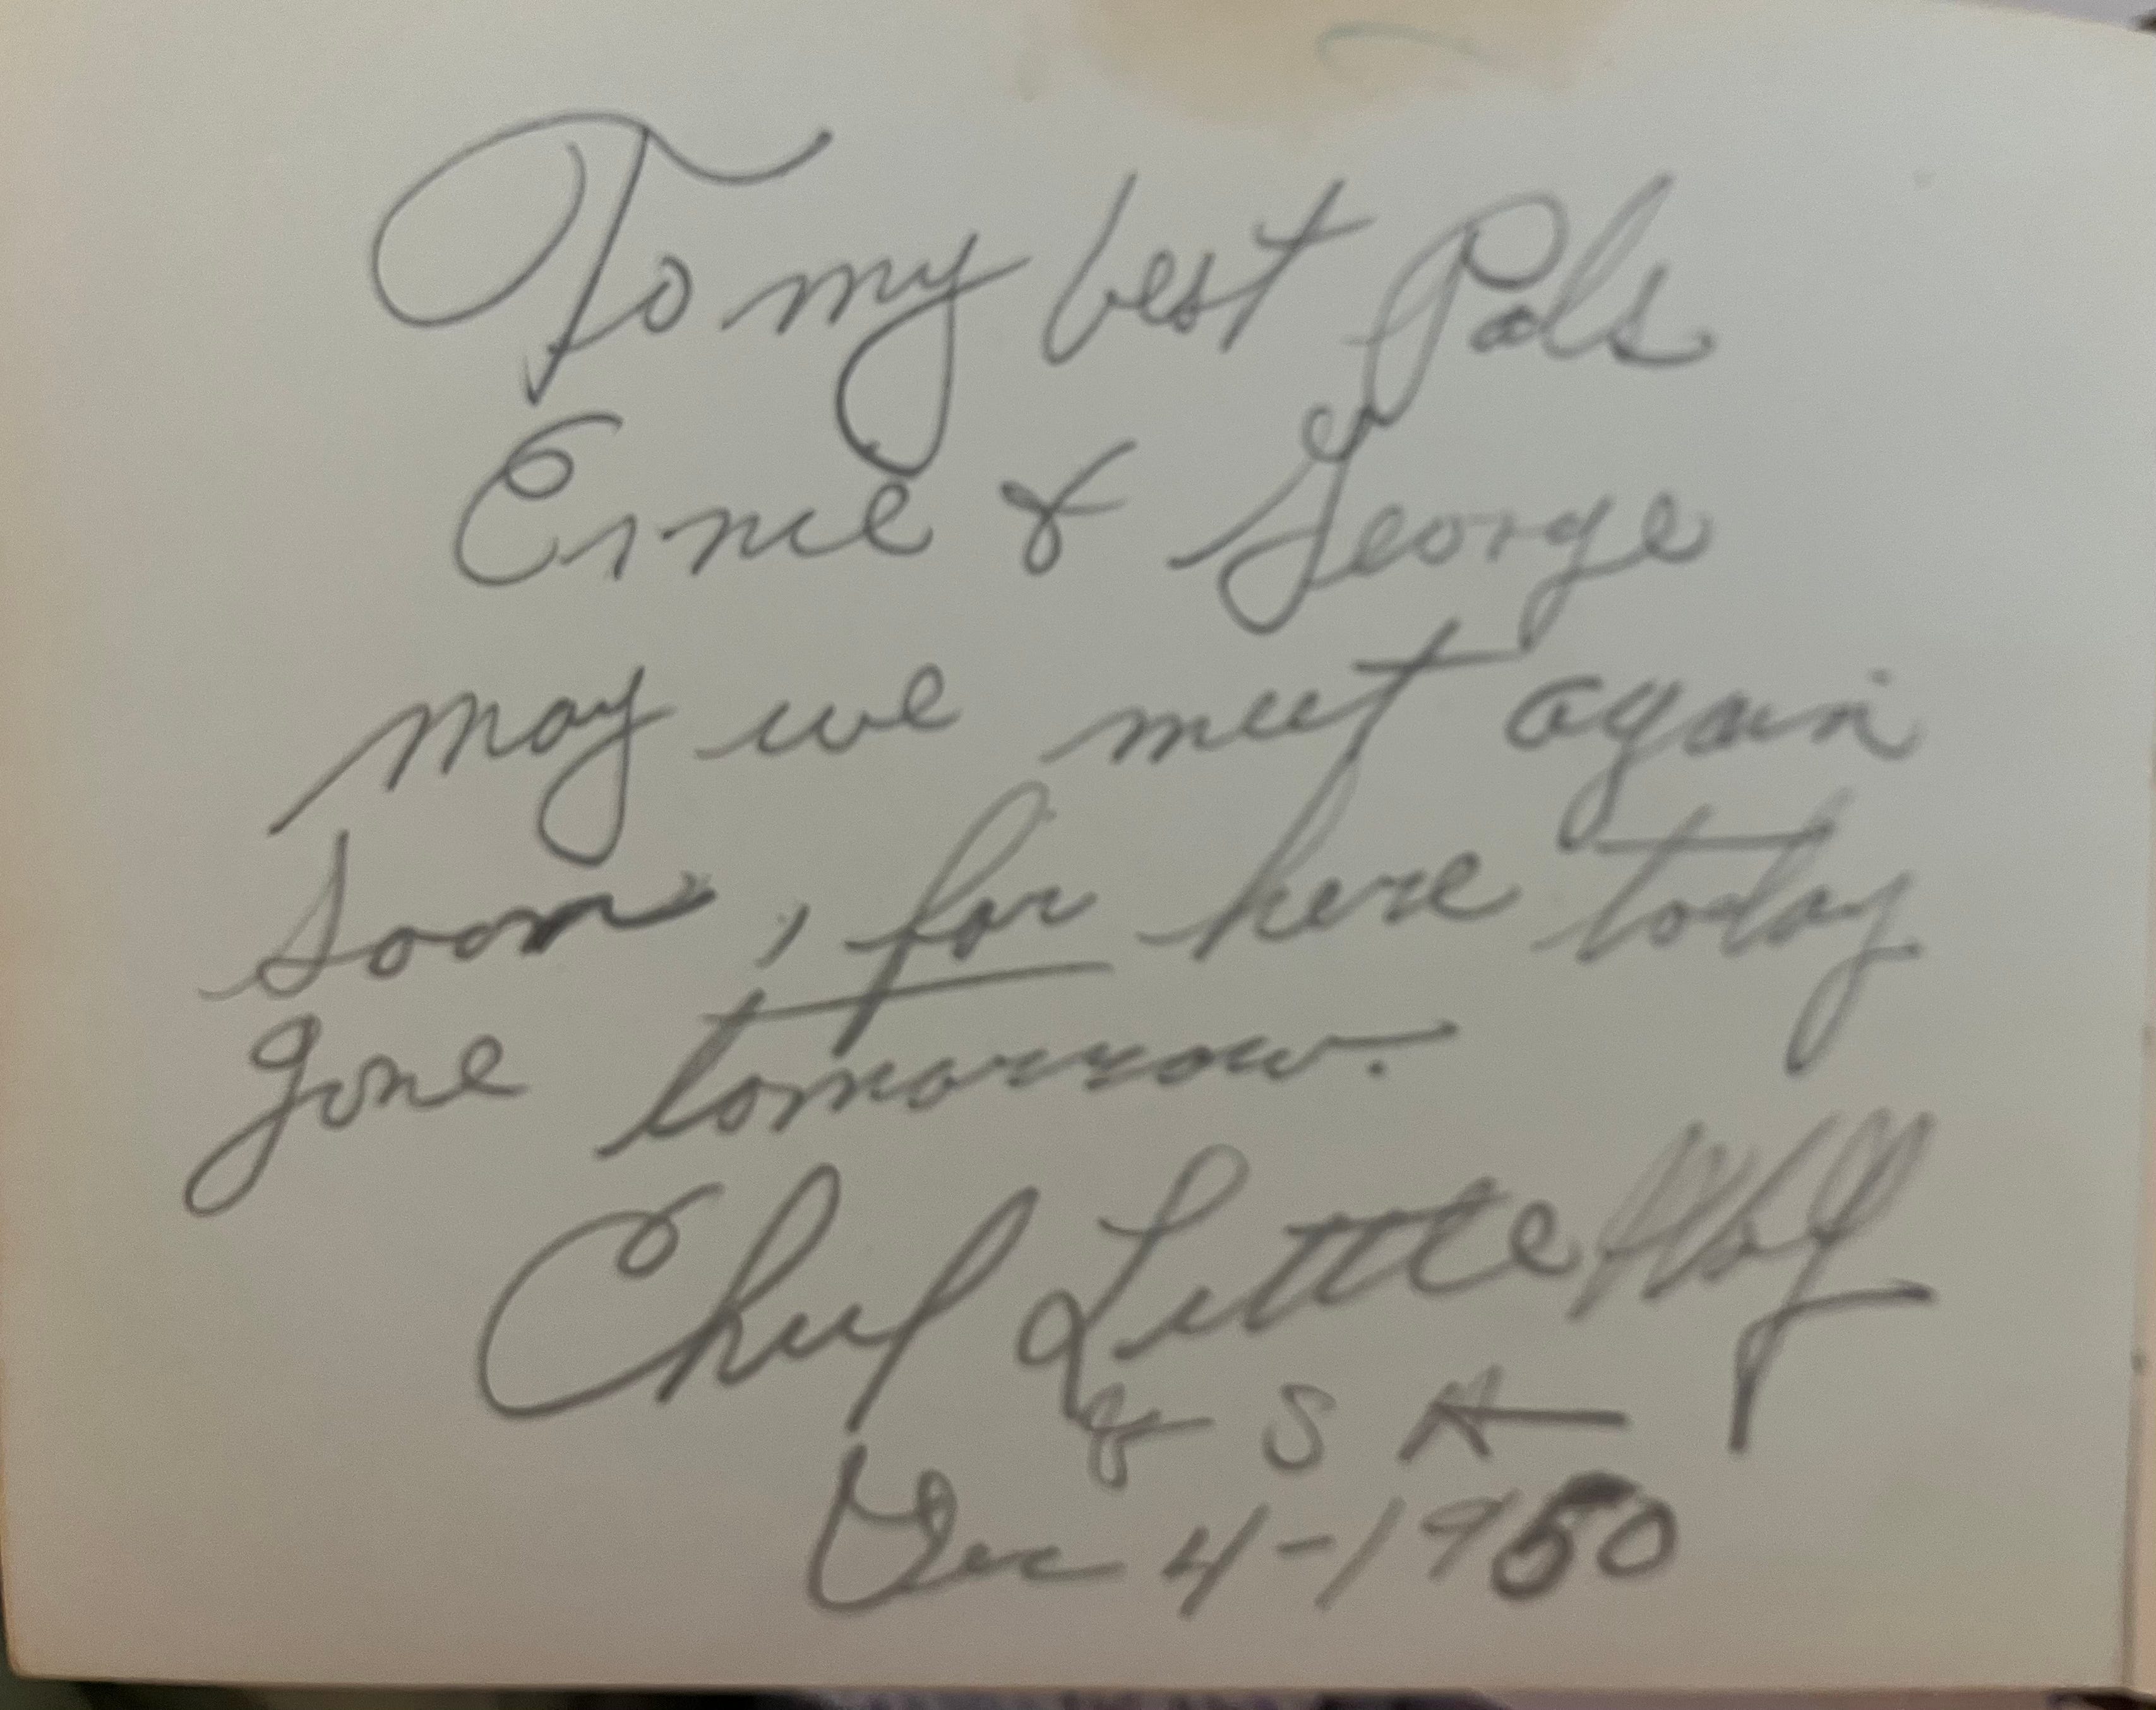 To my best Pals
Ernie & George
may we meet again
soon, for here today
gone tomorrow.
Chief Little Wolf
& S A
Dec 4-1950